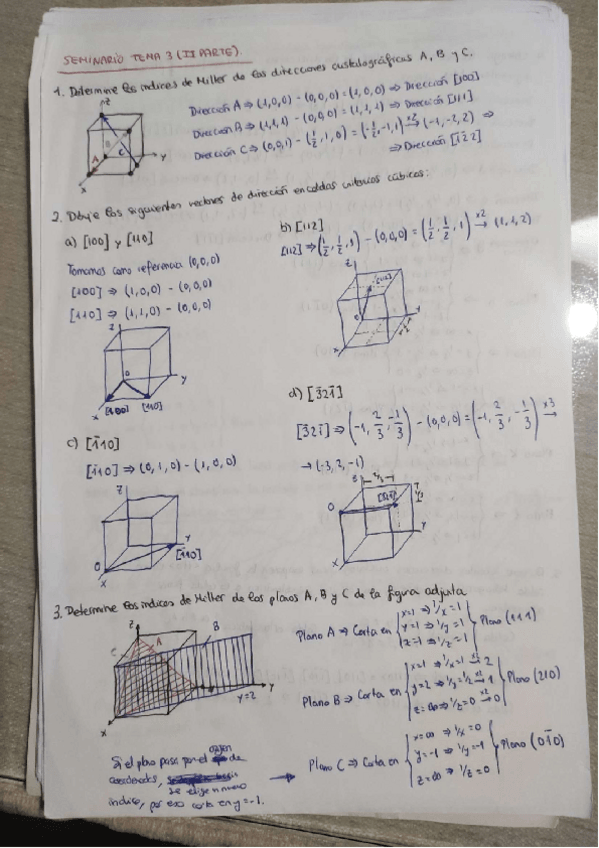 SEMINARIO TEMA 3 (II PARTE).
1. Determine los índices de Miller de las direcciones cristalográficas A, B y C.
Dirección A ⇒ (1,0,0) - (0,0,0) = (1,0,0) ⇒ Dirección [100]
Dirección B ⇒ (1,1,1) - (0,0,0) = (1,1,1) ⇒ Dirección [111]
Dirección C ⇒ (0,0,1) - (1/2,1,0) = (-1/2,-1,1) x2→ (-1,-2,2) ⇒
⇒ Dirección [1̄2̄2]
z
B
A
C
y
x
2. Dibuje los siguientes vectores de dirección en celdas unitarias cúbicas:
a) [100] y [110]
Tomamos como referencia (0,0,0)
[100] ⇒ (1,0,0) - (0,0,0)
[110] ⇒ (1,1,0) - (0,0,0)
z
0
y
x
[100]
[110]
b) [112]
[112] ⇒ (1/2,1/2,1) - (0,0,0) = (1/2,1/2,1) x2→ (1,1,2)
z
[112]
0
y
x
c) [1̄10]
[1̄10] ⇒ (0,1,0) - (1,0,0)
z
0
y
[1̄10]
x
d) [3̄21̄]
[3̄21̄] ⇒ (-1, 2/3, -1/3) - (0,0,0) = (-1, 2/3, -1/3) x3→
→ (-3,2,-1)
z
2/3
0
[3̄21̄]
1/3
y
x
3. Determine los índices de Miller de los planos A, B y C de la figura adjunta
z
B
A
C
y
y=2
x
Plano A ⇒ Corta en
x=1 ⇒ 1/x = 1
y=1 ⇒ 1/y = 1
z=1 ⇒ 1/z = 1
Plano (111)
Plano B ⇒ Corta en
x=1 ⇒ 1/x = 1 x2→ 2
y=2 ⇒ 1/y = 1/2 x2→ 1
z=∞ ⇒ 1/z = 0 x2→ 0
Plano (210)
Plano C ⇒ Corta en
x=∞ ⇒ 1/x = 0
y=-1 ⇒ 1/y = -1
z=∞ ⇒ 1/z = 0
Plano (01̄0)
Si el plano pasa por el origen de
coordenadas,
se elige nuevo
índice, por eso corta en y=-1.